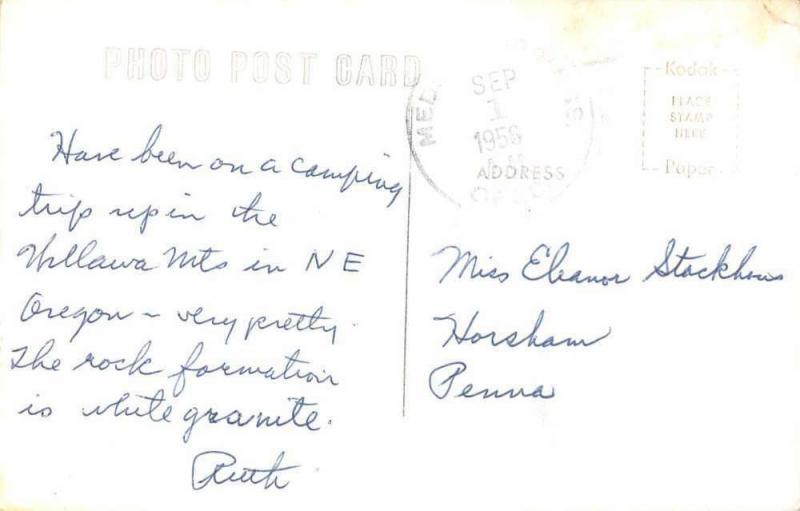 PHOTO POST CARD
SEP
1
1956
MED
OREG
ADDRESS
Kodak
PLACE
STAMP
HERE
Paper
Have been on a camping
trip up in the
Willawa Mts in NE
Oregon ~ very pretty.
The rock formation
is white granite.
Ruth
Miss Eleanor Stockhous
Horsham
Penna